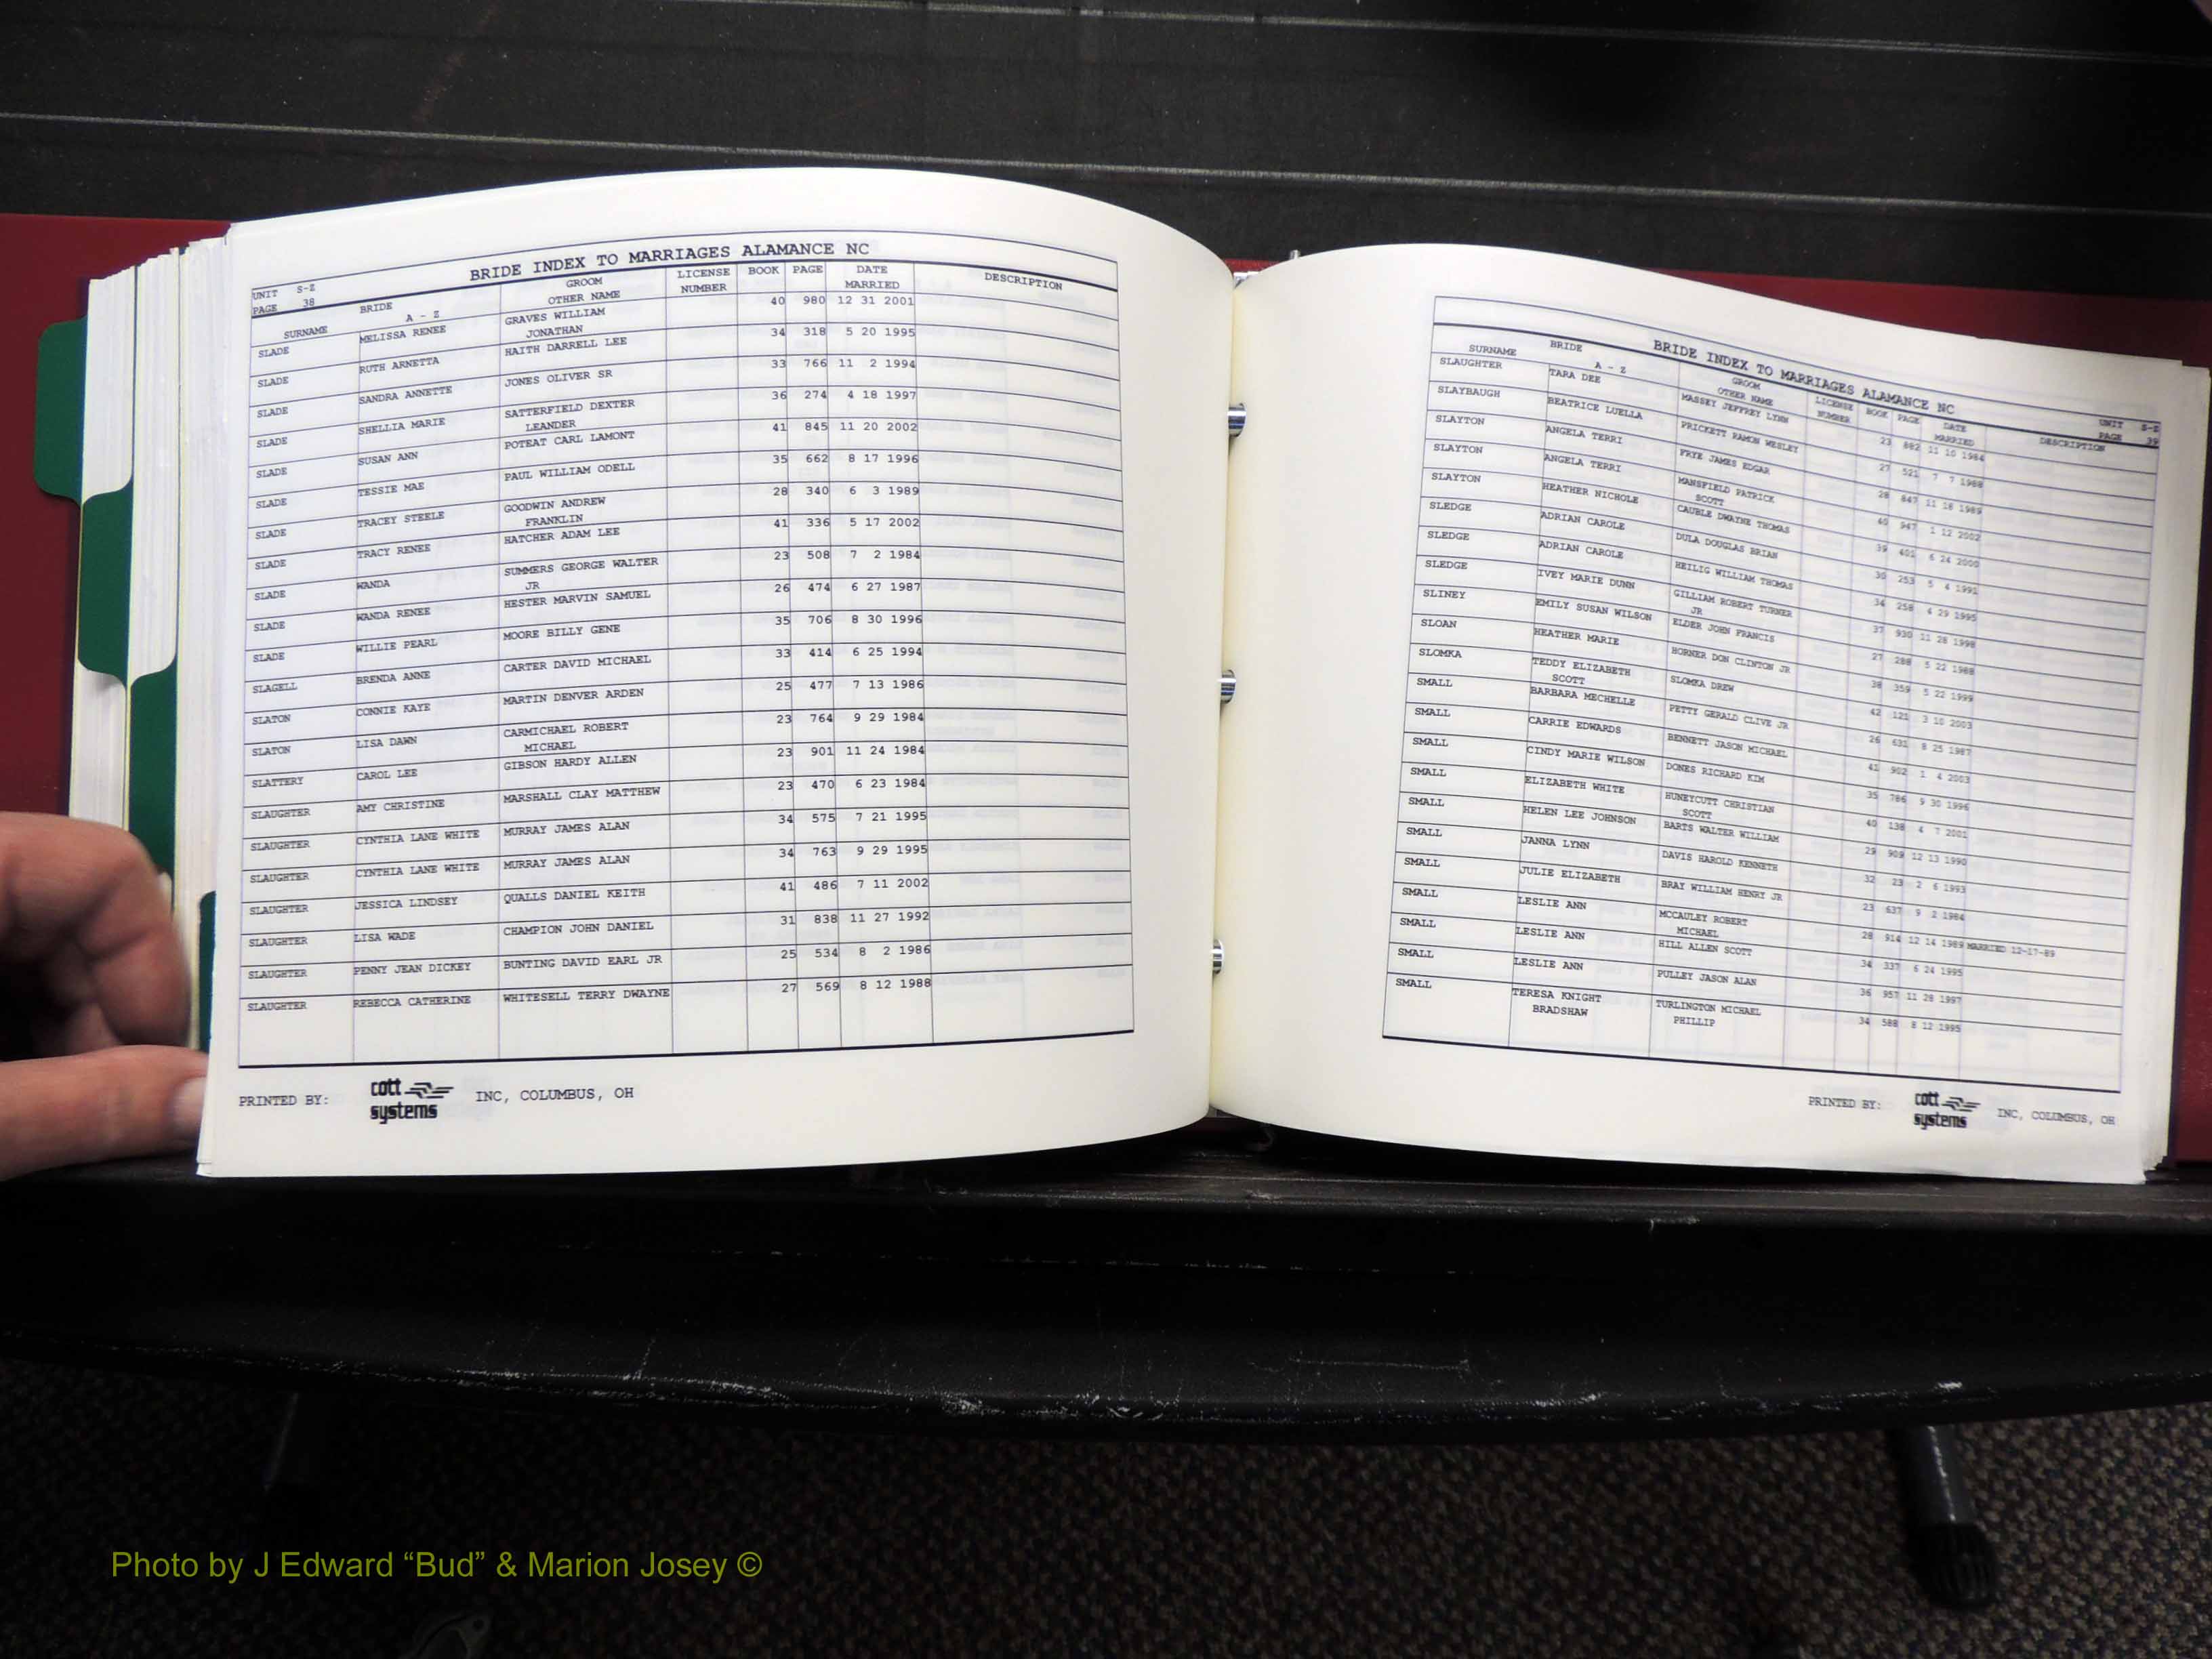 BRIDE INDEX TO MARRIAGES ALAMANCE NC
UNIT S-Z
PAGE 38
SURNAME BRIDE A - Z GROOM OTHER NAME LICENSE NUMBER BOOK PAGE DATE MARRIED DESCRIPTION
SLADE MELISSA RENEE GRAVES WILLIAM JONATHAN 40 980 12 31 2001
SLADE RUTH ARNETTA HAITH DARRELL LEE 34 318 5 20 1995
SLADE SANDRA ANNETTE JONES OLIVER SR 33 766 11 2 1994
SLADE SHELLIA MARIE SATTERFIELD DEXTER LEANDER 36 274 4 18 1997
SLADE SUSAN ANN POTEAT CARL LAMONT 41 845 11 20 2002
SLADE TESSIE MAE PAUL WILLIAM ODELL 35 662 8 17 1996
SLADE TRACEY STEELE GOODWIN ANDREW FRANKLIN 28 340 6 3 1989
SLADE TRACY RENEE HATCHER ADAM LEE 41 336 5 17 2002
SLADE WANDA SUMMERS GEORGE WALTER JR 23 508 7 2 1984
SLADE WANDA RENEE HESTER MARVIN SAMUEL 26 474 6 27 1987
SLADE WILLIE PEARL MOORE BILLY GENE 35 706 8 30 1996
SLAGELL BRENDA ANNE CARTER DAVID MICHAEL 33 414 6 25 1994
SLATON CONNIE KAYE MARTIN DENVER ARDEN 25 477 7 13 1986
SLATON LISA DAWN CARMICHAEL ROBERT MICHAEL 23 764 9 29 1984
SLATTERY CAROL LEE GIBSON HARDY ALLEN 23 901 11 24 1984
SLAUGHTER AMY CHRISTINE MARSHALL CLAY MATTHEW 23 470 6 23 1984
SLAUGHTER CYNTHIA LANE WHITE MURRAY JAMES ALAN 34 575 7 21 1995
SLAUGHTER CYNTHIA LANE WHITE MURRAY JAMES ALAN 34 763 9 29 1995
SLAUGHTER JESSICA LINDSEY QUALLS DANIEL KEITH 41 486 7 11 2002
SLAUGHTER LISA WADE CHAMPION JOHN DANIEL 31 838 11 27 1992
SLAUGHTER PENNY JEAN DICKEY BUNTING DAVID EARL JR 25 534 8 2 1986
SLAUGHTER REBECCA CATHERINE WHITESELL TERRY DWAYNE 27 569 8 12 1988
PRINTED BY: cott systems INC, COLUMBUS, OH
BRIDE INDEX TO MARRIAGES ALAMANCE NC
UNIT S-Z
PAGE 39
SURNAME BRIDE A - Z GROOM OTHER NAME LICENSE NUMBER BOOK PAGE DATE MARRIED DESCRIPTION
SLAUGHTER TARA DEE MASSEY JEFFREY LYNN 23 882 11 10 1984
SLAYBAUGH BEATRICE LUELLA PRICKETT RAMON WESLEY 27 521 7 7 1988
SLAYTON ANGELA TERRI FRYE JAMES EDGAR 28 847 11 18 1989
SLAYTON ANGELA TERRI MANSFIELD PATRICK SCOTT 40 947 1 12 2002
SLAYTON HEATHER NICHOLE CAUBLE DWAYNE THOMAS 39 401 6 24 2000
SLEDGE ADRIAN CAROLE DULA DOUGLAS BRIAN 30 253 5 4 1991
SLEDGE ADRIAN CAROLE HEILIG WILLIAM THOMAS 34 258 4 29 1995
SLEDGE IVEY MARIE DUNN GILLIAM ROBERT TURNER JR 37 930 11 28 1998
SLINEY EMILY SUSAN WILSON ELDER JOHN FRANCIS 27 288 5 22 1988
SLOAN HEATHER MARIE HORNER DON CLINTON JR 38 359 5 22 1999
SLOMKA TEDDY ELIZABETH SCOTT SLOMKA DREW 42 121 3 10 2003
SMALL BARBARA MECHELLE PETTY GERALD CLIVE JR 26 631 8 25 1987
SMALL CARRIE EDWARDS BENNETT JASON MICHAEL 41 902 1 4 2003
SMALL CINDY MARIE WILSON DONES RICHARD KIM 35 786 9 30 1996
SMALL ELIZABETH WHITE HUNEYCUTT CHRISTIAN SCOTT 40 138 4 7 2001
SMALL HELEN LEE JOHNSON BARTS WALTER WILLIAM 29 909 12 13 1990
SMALL JANNA LYNN DAVIS HAROLD KENNETH 32 23 2 6 1993
SMALL JULIE ELIZABETH BRAY WILLIAM HENRY JR 23 637 9 2 1984
SMALL LESLIE ANN MCCAULEY ROBERT MICHAEL 28 914 12 14 1989 MARRIED 12-17-89
SMALL LESLIE ANN HILL ALLEN SCOTT 34 337 6 24 1995
SMALL LESLIE ANN PULLEY JASON ALAN 36 957 11 28 1997
SMALL TERESA KNIGHT BRADSHAW TURLINGTON MICHAEL PHILLIP 34 588 8 12 1995
PRINTED BY: cott systems INC, COLUMBUS, OH
Photo by J Edward “Bud” & Marion Josey ©